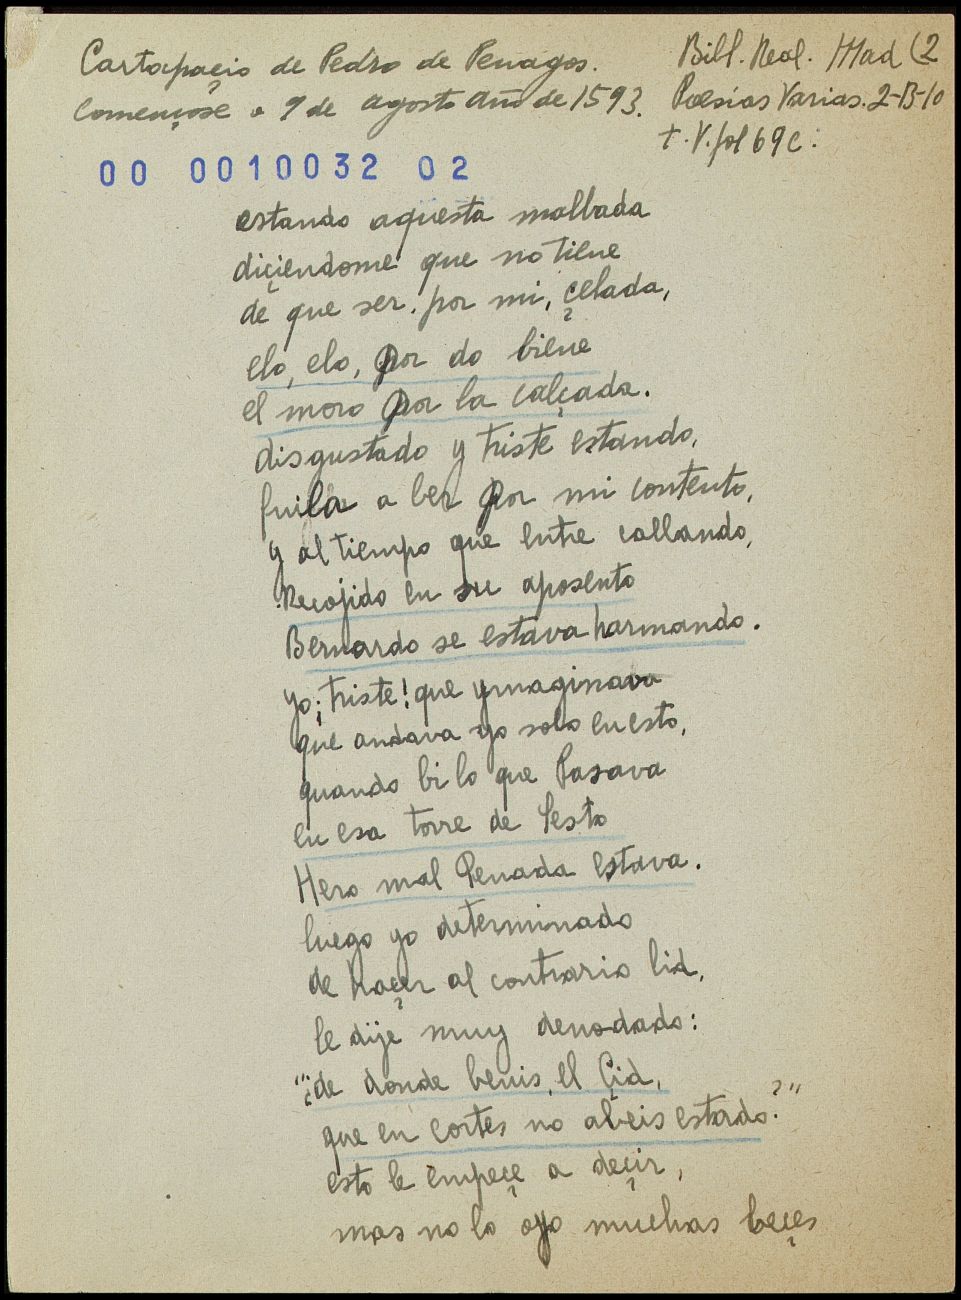 Cartapaçio de Pedro de Penagos.
Començose a 9 de agosto Año de 1593.
Bibl. Real. Mad (2
Poesías Varias. 2-B-10
t. V. fol 69 c:
00 0010032 02
estando aquesta malbada
diçiendome que no tiene
de que ser, por mi, çelada,
elo, elo, por do biene
el moro por la calçada.
disgustado y triste estando,
fuila a ber por mi contento,
y al tiempo que entre callando,
Recojido en su aposento
Bernardo se estava harmando.
yo ¡triste! que ymaginava
que andava yo solo en esto,
quando bi lo que Pasava
en esa torre de Sesto
Hero mal Penada estava.
luego yo determinado
de haçer al contrario lid,
le dije muy denodado:
"¿de donde benis, el Çid,
que en cortes no abeis estado?"
esto le empeçe a deçir,
mas no lo oyo muchas beçes